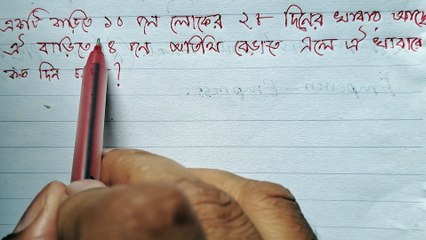 একটি বাড়িতে ১০ জন লোকের ২৮ দিনের খাবার আছে
ঐ বাড়িতে ৪ জন অতিথি বেড়াতে এলে ঐ খাবারে
কত দিন ?